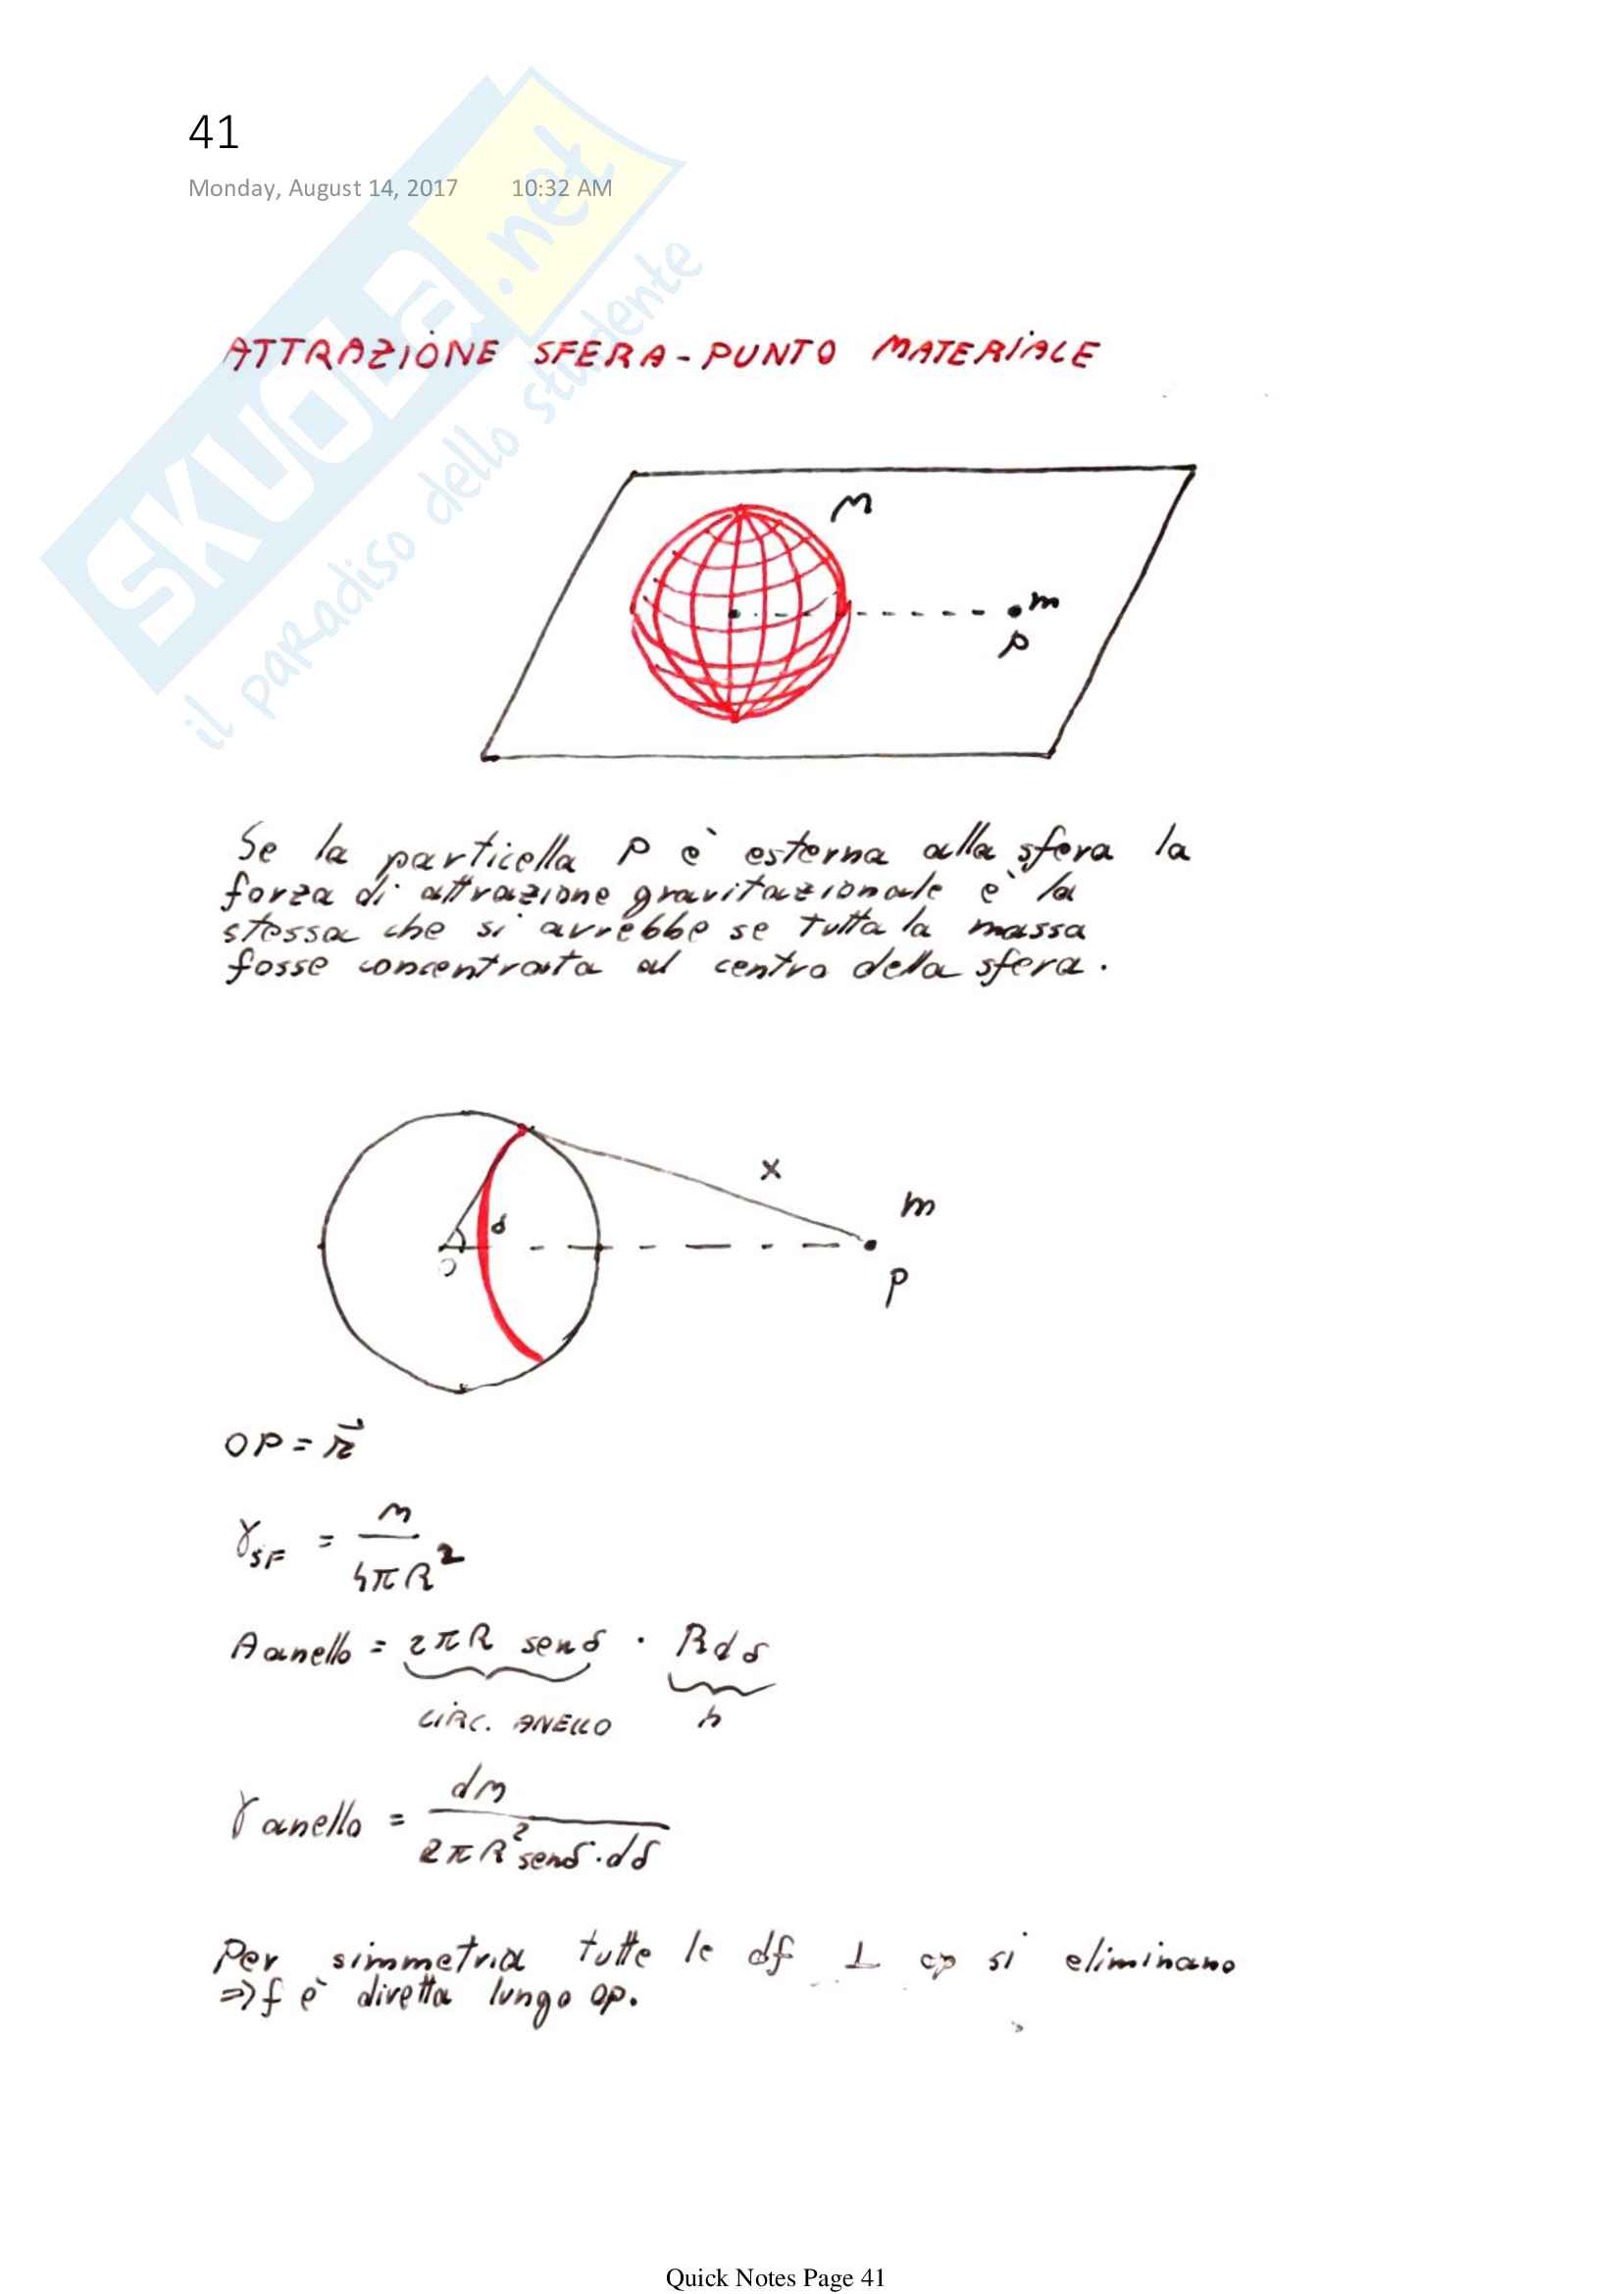 41
Monday, August 14, 2017 10:32 AM
SKUOLa.net
il paradiso dello studente
ATTRAZIONE SFERA-PUNTO MATERIALE
M
m
P
Se la particella P è esterna alla sfera la
forza di attrazione gravitazionale è la
stessa che si avrebbe se tutta la massa
fosse concentrata al centro della sfera.
x
m
δ
O
P
OP = r⃗
γ_SF = M / 4πR²
A anello = 2πR senδ · Rdδ
CIRC. ANELLO h
γ anello = dM / 2πR² senδ · dδ
Per simmetria tutte le df ⊥ op si eliminano
⇒ f è diretta lungo op.
Quick Notes Page 41